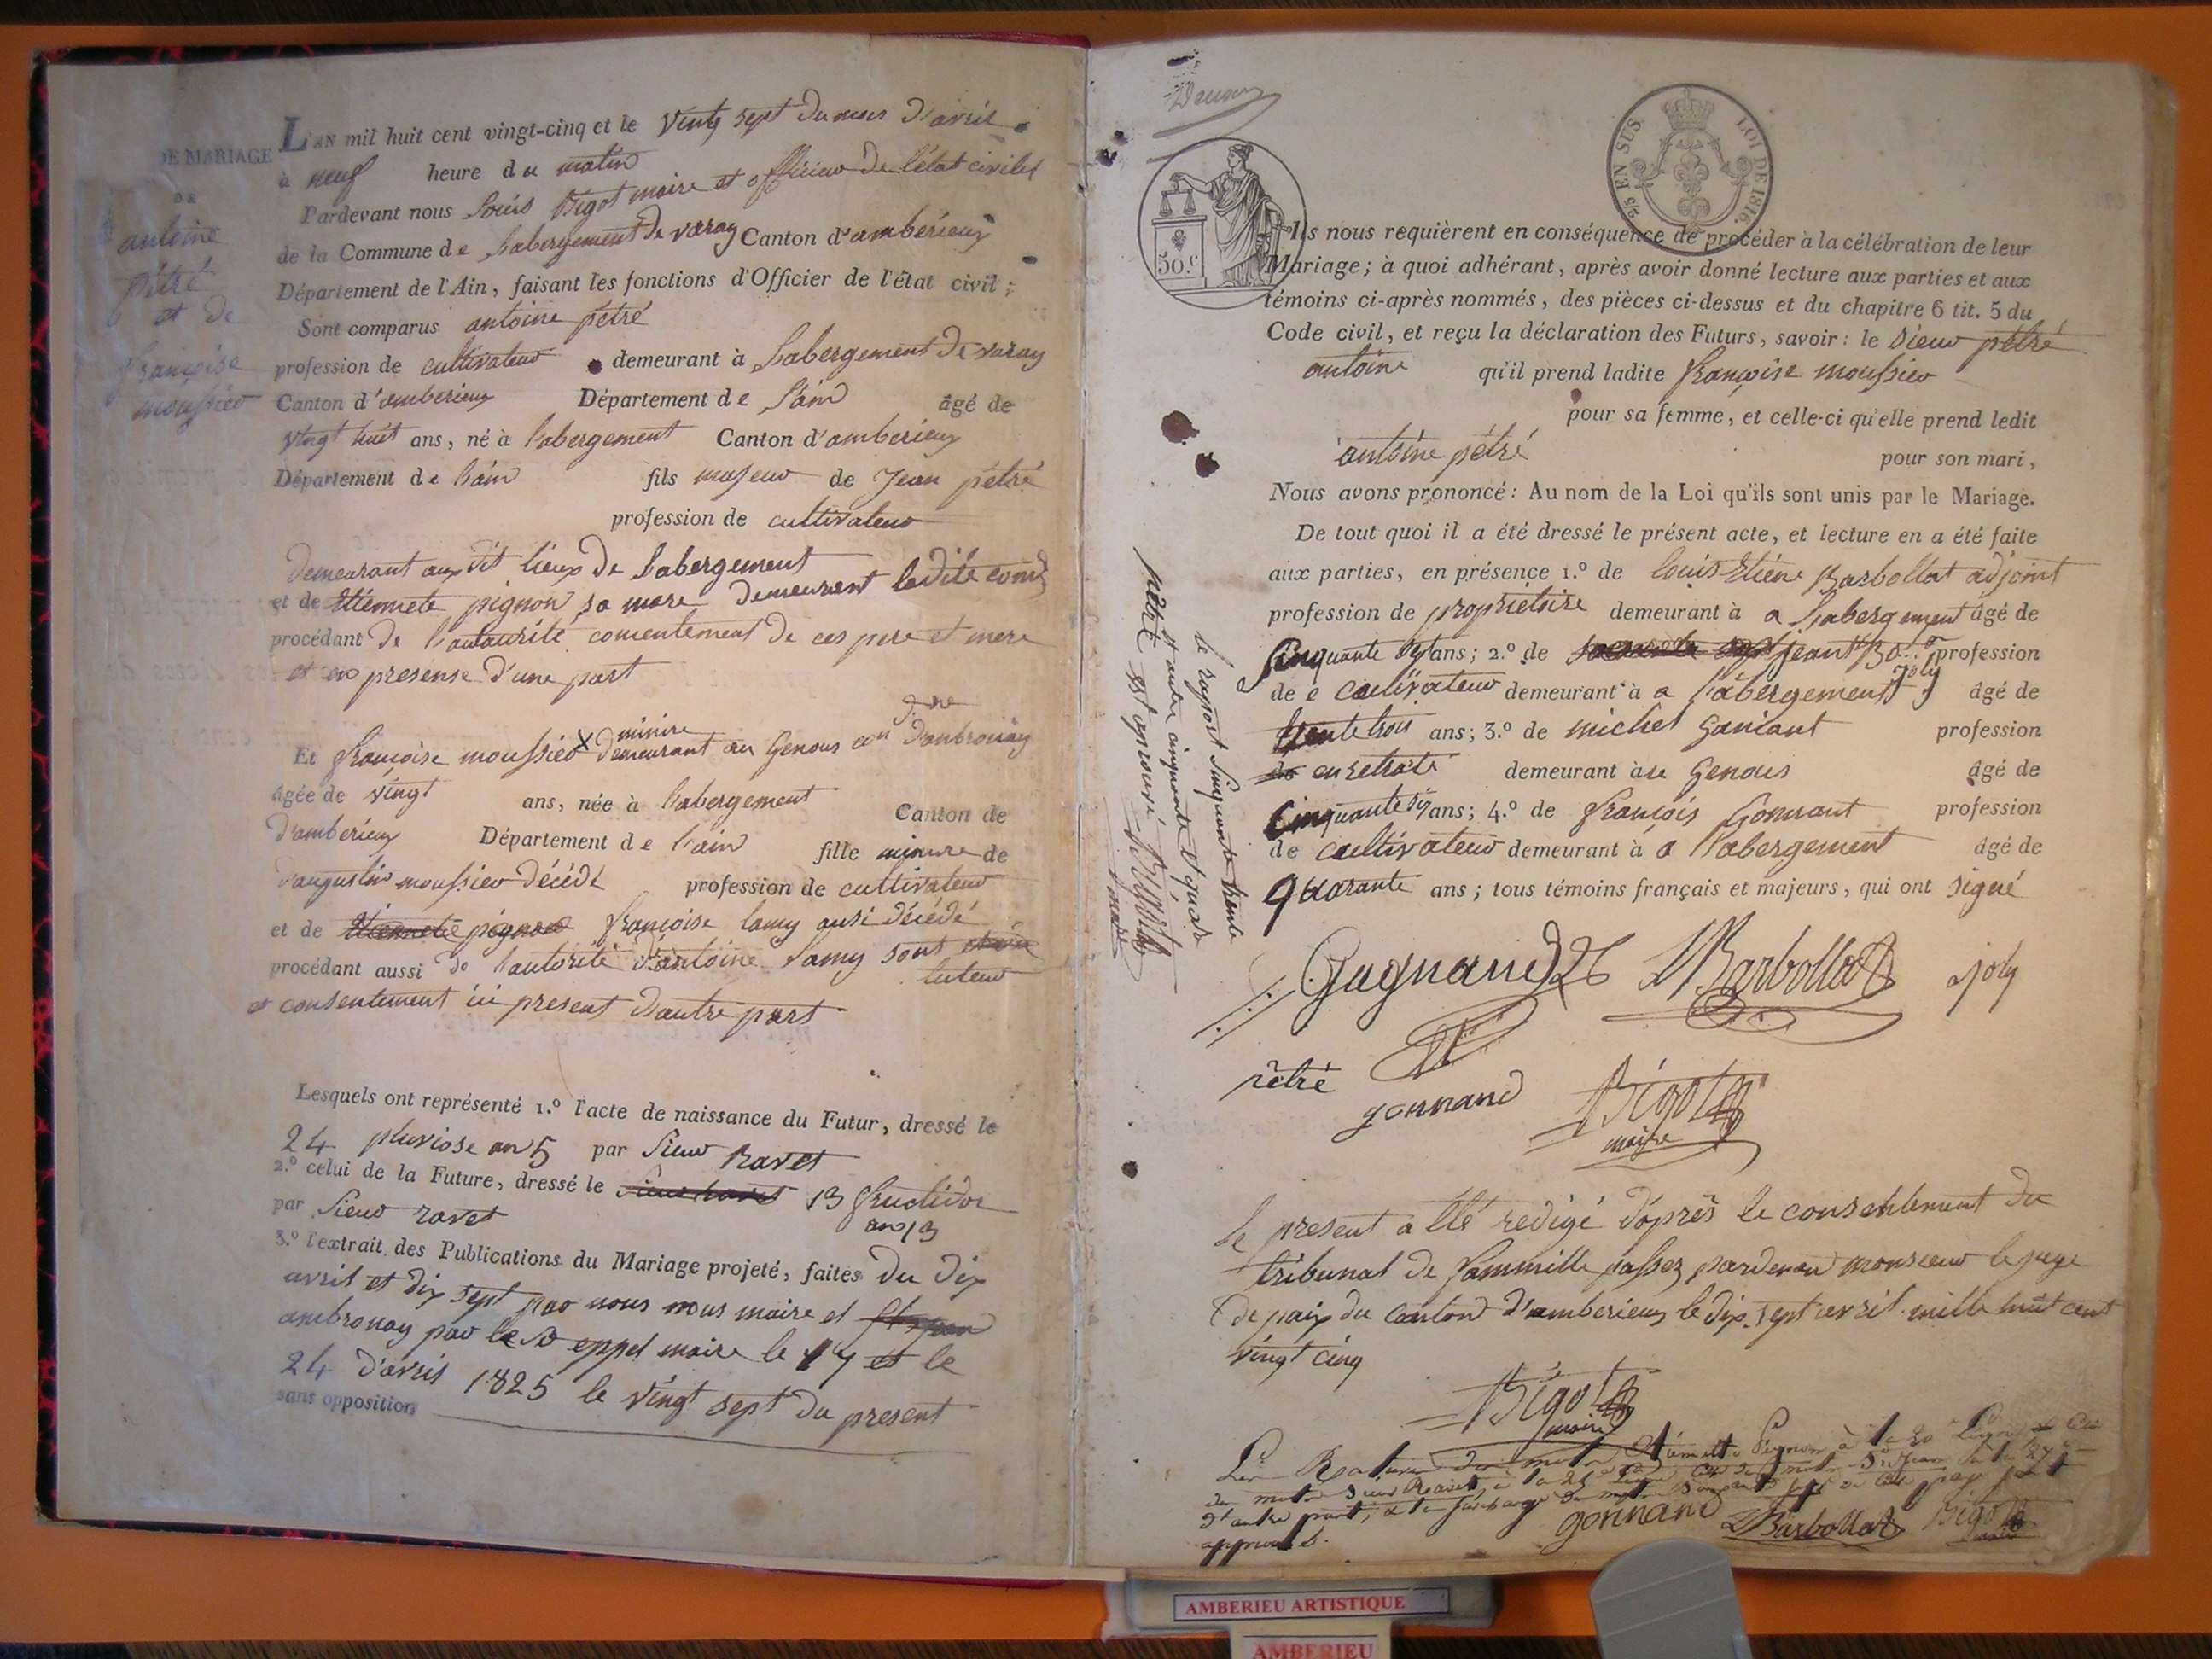 DE MARIAGE
DE
antoine
pétré
et de
françoise
moussier
L'AN mil huit cent vingt-cinq et le vingt sept du mois d'avril
à neuf heure du matin
Pardevant nous Louis Bigot maire et officier de l'état civilet
de la Commune de Labergement de varey Canton d'ambérieux
Département de l'Ain, faisant les fonctions d'Officier de l'état civil;
Sont comparus antoine pétré
profession de cultivateur demeurant à Labergement de varay
Canton d'amberieux Département de L'ain âgé de
vingt huit ans, né à Labergement Canton d'amberieux
Département de L'ain fils majeur de Jean pétré
profession de cultivateur
demeurant aux dit lieux de Labergement
et de Etiennete pignon sa mere demeurant ladite
procédant de l'autaurité consentement de ces pere et mere
et en presense d'une part
minire
Et françoise moussier demeurant au Genous d'ambronay
âgée de vingt ans, née à Labergement Canton de
d'amberieux Département de l'ain fille mineure de
d'augustin moussier décédé profession de cultivateur
et de Etiennete pignon françoise lamy ausi décédé
procédant aussi de l'autorité d'antoine Lamy sont
tuteur
et consentement ici present d'autre part
Lesquels ont représenté 1.º l'acte de naissance du Futur, dressé le
24 pluviose an 5 par Sieur Ravet
2.º celui de la Future, dressé le sieur ravet 13 fructidor
an 13
par Sieur ravet
3.º l'extrait des Publications du Mariage projeté, faites du dix
avril et dix sept par nous nous maire et
ambronay par le Sr eppel maire le 17 et le
24 d'avril 1825 le vingt sept du present
sans opposition
50.c
2/5 EN SUS.
LOI DE 1816.
Ils nous requièrent en conséquence de procéder à la célébration de leur
Mariage; à quoi adhérant, après avoir donné lecture aux parties et aux
témoins ci-après nommés, des pièces ci-dessus et du chapitre 6 tit. 5 du
Code civil, et reçu la déclaration des Futurs, savoir: le sieur pétré
antoine qu'il prend ladite françoise moussier
pour sa femme, et celle-ci qu'elle prend ledit
antoine pétré pour son mari,
Nous avons prononcé: Au nom de la Loi qu'ils sont unis par le Mariage.
De tout quoi il a été dressé le présent acte, et lecture en a été faite
aux parties, en présence 1.º de Louis Etiène Barbollat adjoint
profession de proprietaire demeurant à a Labergement âgé de
Cinquante ans; 2.º de jean profession
joly
de e cultivateur demeurant à a Labergement âgé de
trente trois ans; 3.º de michel Ganiant profession
de en retraite demeurant à au Genous âgé de
Cinquante six ans; 4.º de françois Gonnant profession
de cultivateur demeurant à a Labergement âgé de
quarante ans; tous témoins français et majeurs, qui ont signé
Gagnand LBarbollat joly
pétré gonnand Bigot
maire
le raport sinquante trente
et autre cinquante et quar
pétré est aprouvé Bigot
maire
le present a été redigé d'après le consentement du
tribunal de fammille passez pardevan monsieur le juge
de paix du Canton d'amberieux le dix sept avril mille huit cent
vingt cinq
Bigot
maire
Les Ratures des mots Etiennette Pignon à la 20
des mots sieur Ravet, à la
d'autre part, et la surcharge du mot
approuvés.
gonnand LBarbollat Bigot
AMBERIEU ARTISTIQUE
AMBERIEU